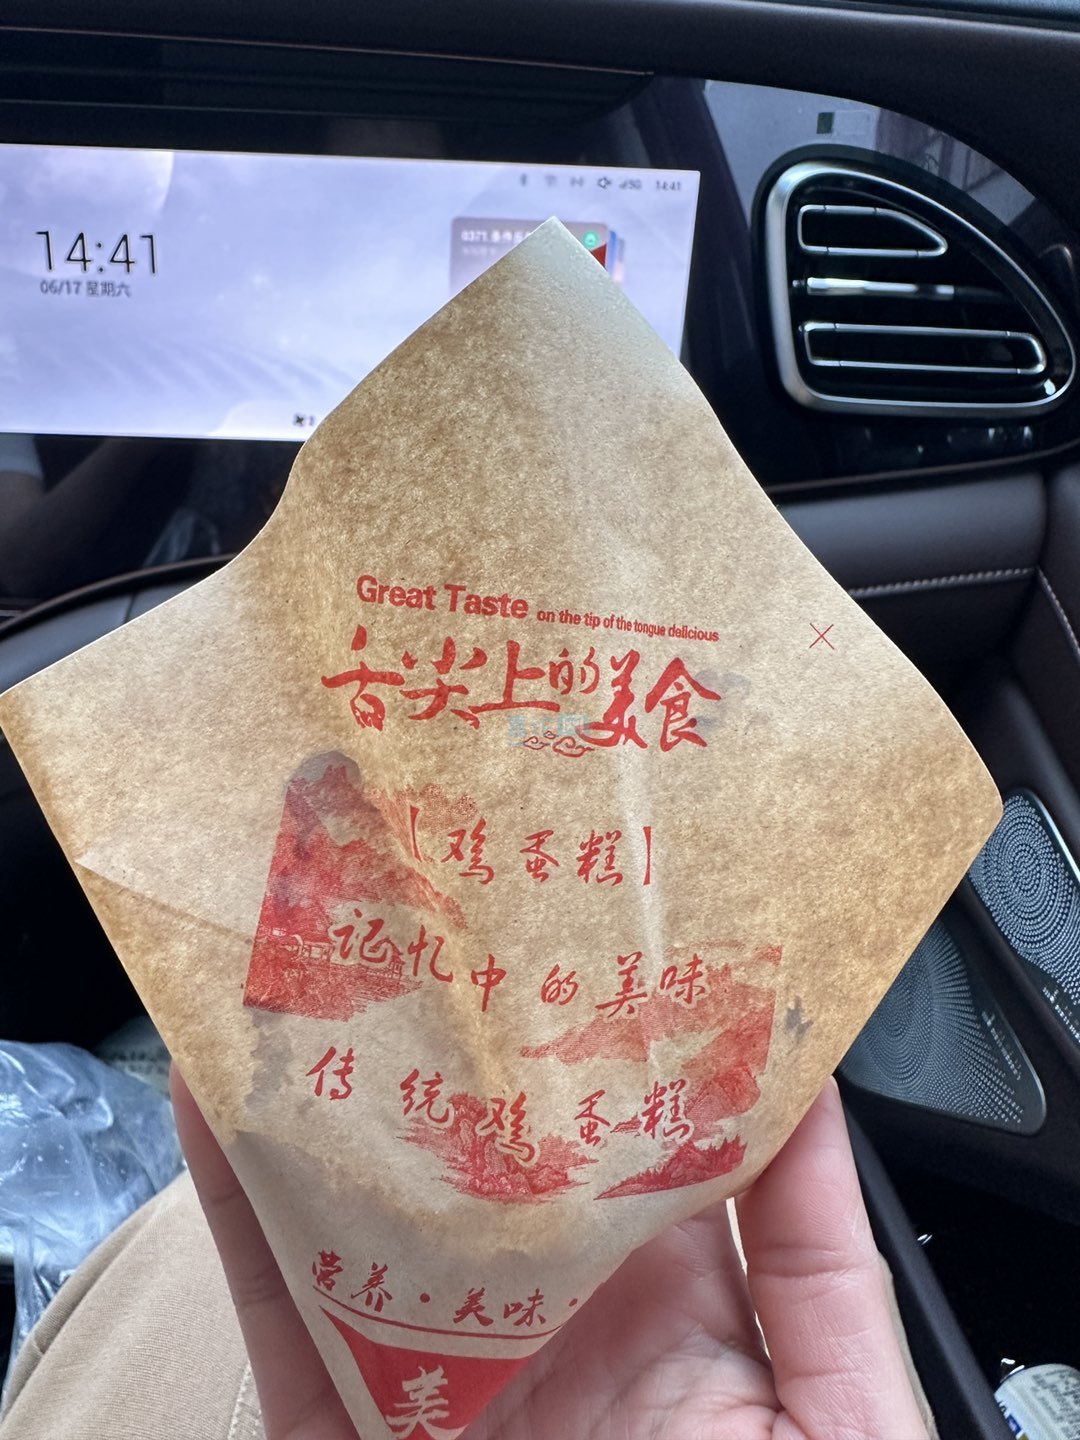 5G 14:41
14:41
06/17 星期六
Great Taste on the tip of the tongue delicious
舌尖上的美食
【鸡蛋糕】
记忆中的美味
传统鸡蛋糕
营养·美味·
美